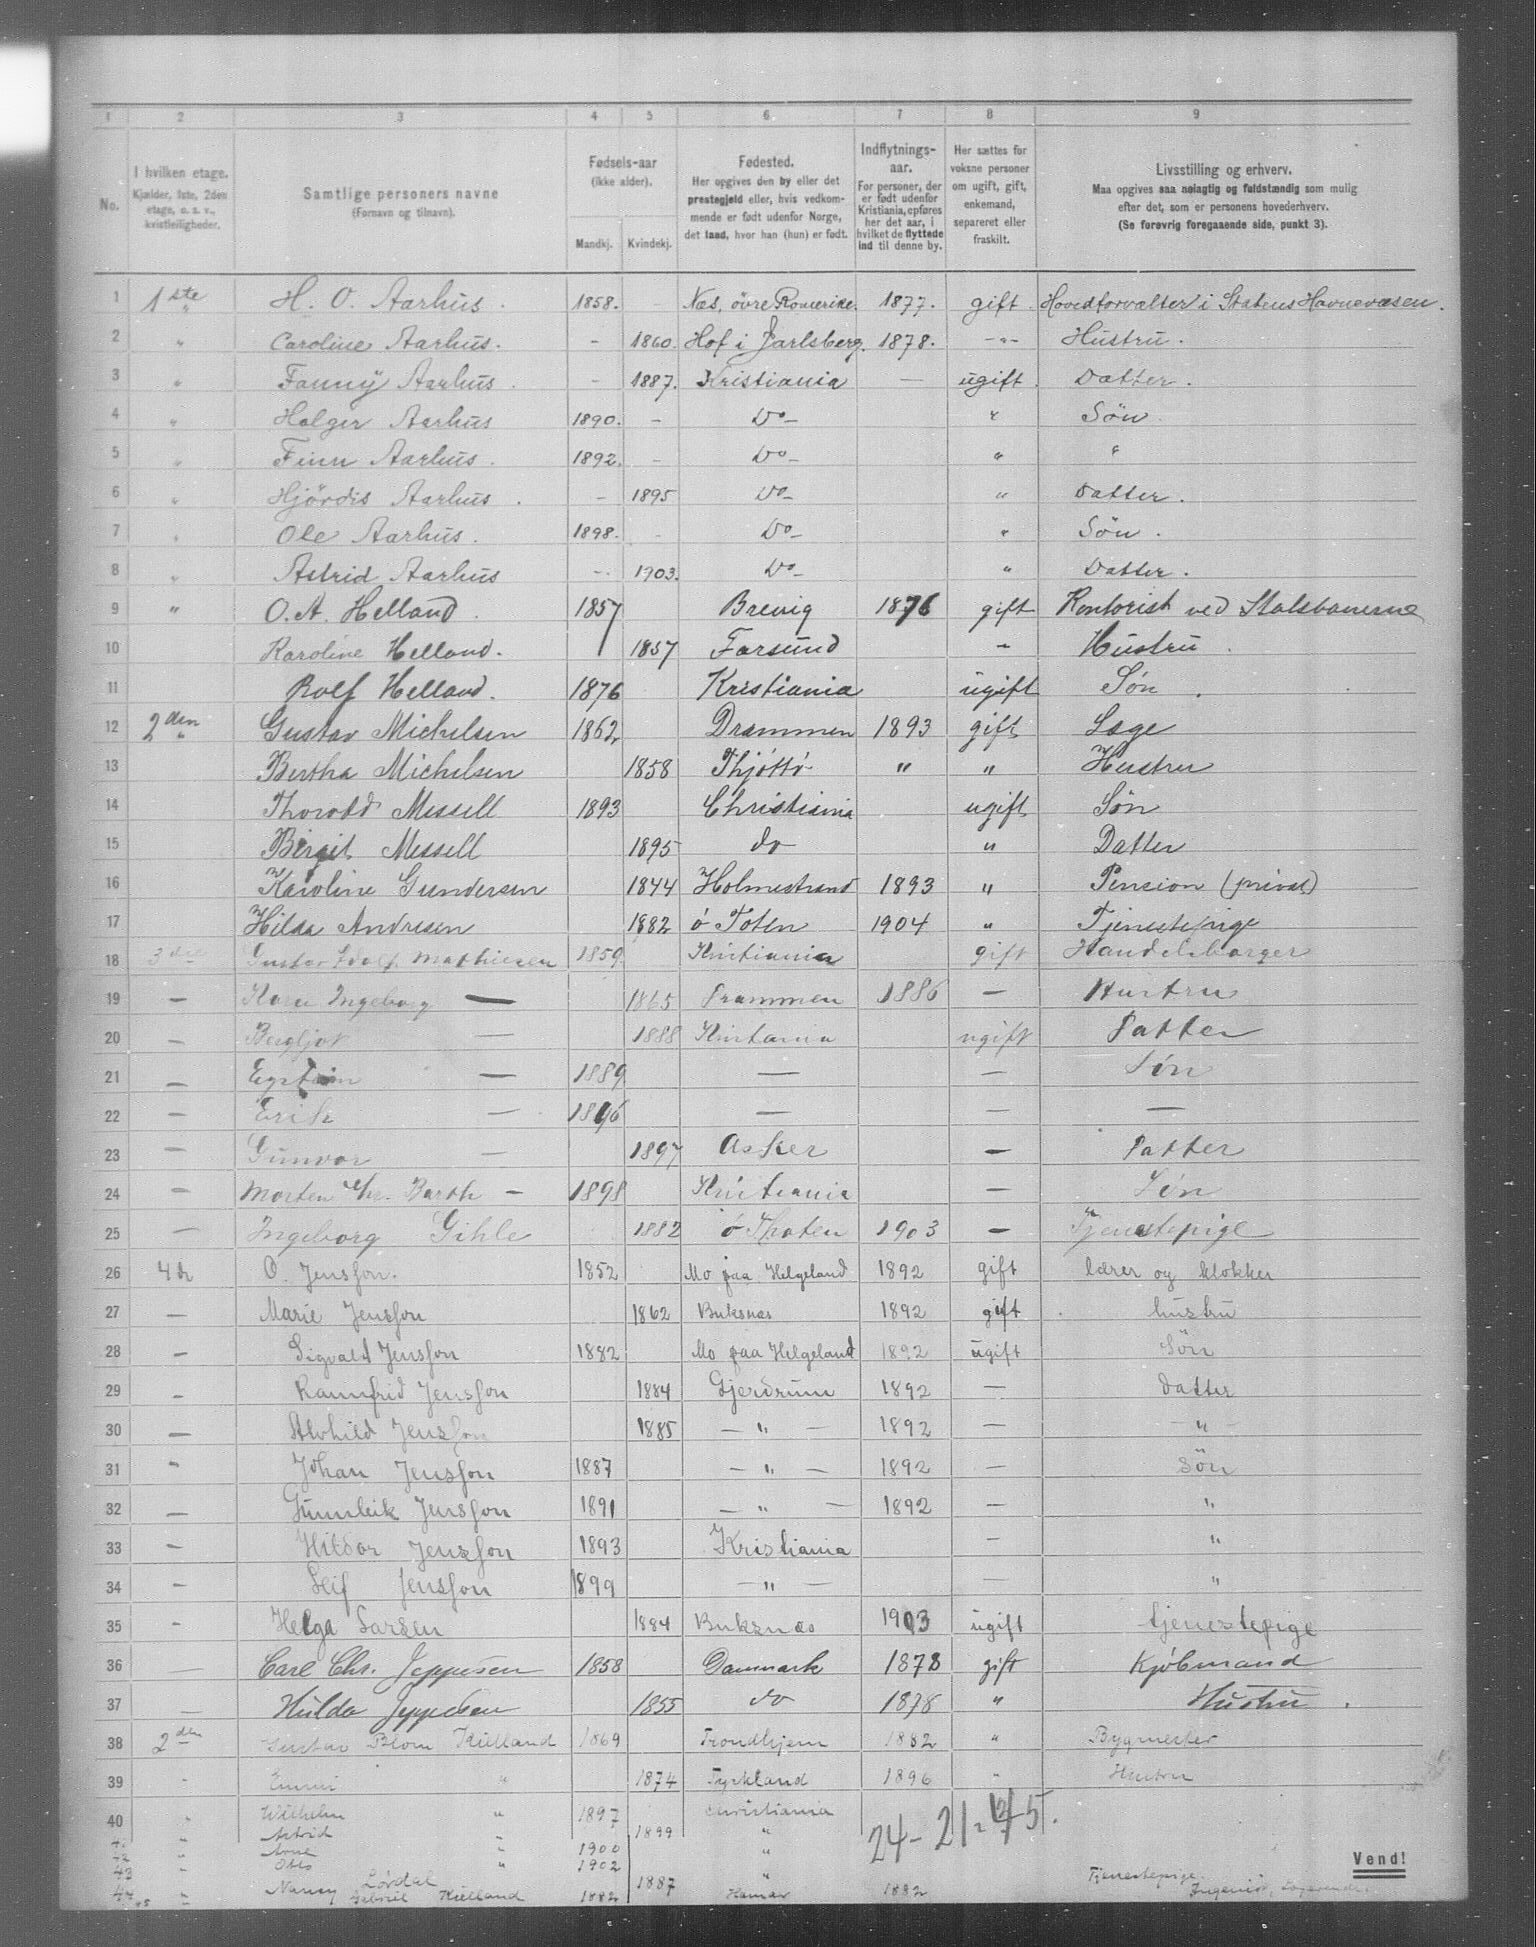 1 2 3 4 5 6 7 8 9
No. | I hvilken etage. Kjælder, 1ste, 2den etage, o. s. v., kvistleiligheder. | Samtlige personers navne (Fornavn og tilnavn). | Fødsels-aar (ikke alder). Mandkj. Kvindekj. | Fødested. Her opgives den by eller det prestegjeld eller, hvis vedkommende er født udenfor Norge, det land, hvor han (hun) er født. | Indflytnings-aar. For personer, der er født udenfor Kristiania, opføres her det aar, i hvilket de flyttede ind til denne by. | Her sættes for voksne personer om ugift, gift, enkemand, separeret eller fraskilt. | Livsstilling og erhverv. Maa opgives saa nøiagtig og fuldstændig som mulig efter det, som er personens hovederhverv. (Se forøvrig foregaaende side, punkt 3).
1 1ste " H. O. Aarhus. 1858. - Næs, övre Romerike. 1877. gift. Hovedforvalter i Statens Havnevæsen.
2 " Caroline Aarhus. - 1860. Hof i Jarlsberg. 1878. -"- Hustru.
3 " Fanny Aarhus. - 1887. Kristiania — ugift. Datter.
4 " Holger Aarhus 1890. - Do- " Sön.
5 " Finn Aarhus. 1892. - Do- " "
6 " Hjördis Aarhus. - 1895 Do- " Datter.
7 " Ole Aarhus. 1898. - Do- " Sön.
8 " Astrid Aarhus -. 1903. Do- " Datter.
9 " O. A. Helland. 1857 Brevig 1876 gift Kontorist ved Statsbanerne
10 Karoline Helland. 1857 Farsund - Hustru.
11 Rolf Helland. 1876 Kristiania ugift Søn.
12 2den " Gustav Michelsen 1862 Drammen 1893 gift Læge
13 Bertha Michelsen 1858 Thjøttø " " Hustru
14 Thorodd Messell 1893 Christiania ugift Søn
15 Birgit Messell 1895 do " Datter
16 Karoline Gundersen 1844 Holmestrand 1893 " Pension (privat)
17 Hilda Andresen 1882 ø Toten 1904 " Tjenestepige
18 3die Gustav Adolf Mathiesen 1859 Kristiania gift Handelsborger
19 — Kara Ingeborg — 1865 Drammen 1886 — Hustru
20 — Bergljot — 1888 Kristiania ugift Datter
21 — Eystein — 1889 — — Søn
22 — Erik — 1896 — — —
23 — Gunvor — 1897 Asker — Datter
24 — Morten Chr. Barth — 1898 Kristiania — Søn
25 — Ingeborg Gihle 1882 ø Thoten 1903 — Tjenestepige
26 4de O. Jensson. 1852 Mo paa Helgeland 1892 gift lærer og klokker
27 — Marie Jensson 1862 Buksnæs 1892 gift hustru
28 — Sigvald Jensson 1882 Mo paa Helgeland 1892 ugift Sön
29 — Rannfrid Jensson 1884 Gjerdrum 1892 — Datter
30 — Alvhild Jensson 1885 — " — 1892 — — " —
31 — Johan Jensson 1887 — " — 1892 — Sön
32 — Gunnleik Jensson 1891 — " — 1892 — "
33 — Hildor Jensson 1893 Kristiania — "
34 — Leif Jensson 1899 — " — — "
35 — Helga Larsen 1884 Buksnæs 1903 ugift tjenestepige
36 — Carl Chr. Jeppesen 1858 Danmark 1878 gift Kjøbmand
37 — Hulda Jeppesen 1855 do 1878 " Hustru.
38 2den Gustav Blom Kielland 1869 Trondhjem 1882 " Bygmester
39 - Emmi " 1874 Tyskland 1896 " Hustru
40 " Wilhelm " 1897 Christiania
41 " Astrid " 1899 "
42 " Arne " 1900 "
43 " Otto " 1902 "
44 " Nancy Lördal 1887 " Tjenestepige
45 " Gabriel Kielland 1882 Hamar 1882 Ingeniør,
24 - 21 = 45.
Vend!